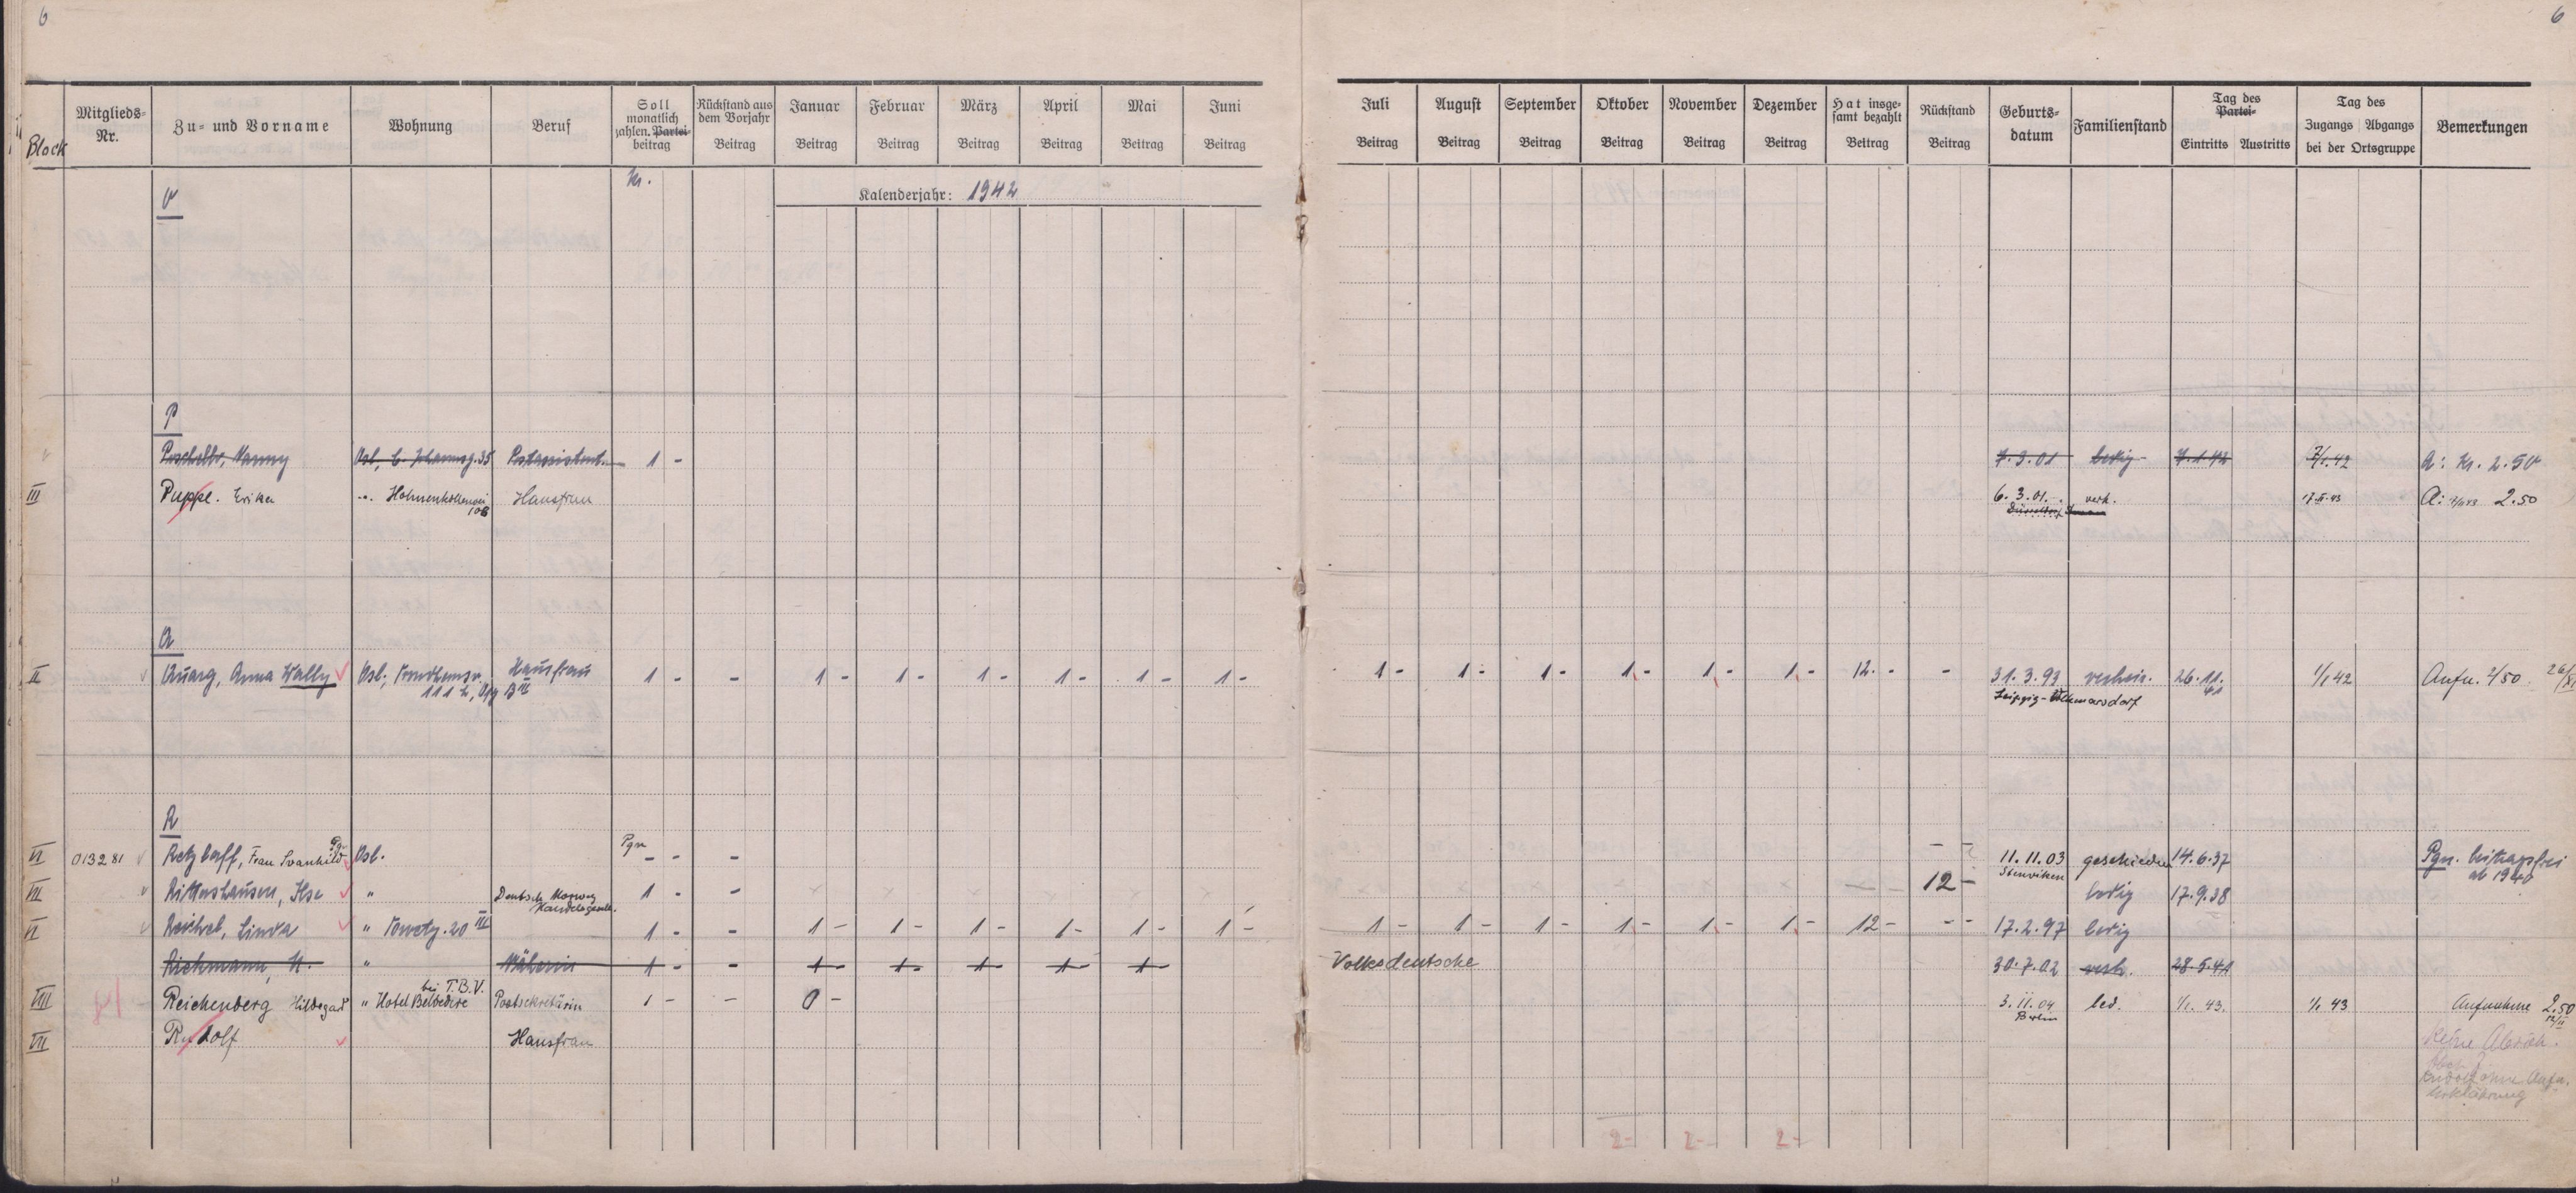 6
6
Block
Mitglieds-Nr.
Zu- und Vorname
Wohnung
Beruf
Soll monatlich zahlen. Partei-beitrag
Rückstand aus dem Vorjahr Beitrag
Januar Beitrag
Februar Beitrag
März Beitrag
April Beitrag
Mai Beitrag
Juni Beitrag
Juli Beitrag
August Beitrag
September Beitrag
Oktober Beitrag
November Beitrag
Dezember Beitrag
Hat insgesamt bezahlt Beitrag
Rückstand Beitrag
Geburts-datum
Familienstand
Tag des Partei- Eintritts Austritts
Tag des Zugangs Abgangs bei der Ortsgruppe
Bemerkungen
Kr.
Kalenderjahr: 1942
P
Nanny Osl, 35 Postassistent. 1 - 7.3.01 ledig 7.1.42 7/1.42 A: Kr. 2.50
III Puppe. Erika Hausfrau 6.3.01. verh. 17.II.43 A: 2.50
Düsseldorf
Q
II Quarg, Anna Wally Osl., Hausfrau 1 - - 1 - 1 - 1 - 1 - 1 - 1 - 1 - 1 - 1 - 1 - 1 - 1 - 12. - - 31.3.93 verheir. 26.11.41 1/1 42 Aufn. 2/50
111 B III
Leipzig-Volkmarsdorf
R
VI 013281 Retzlaff, Frau Svanhild Pgn Osl. Pgn - - - - - 11.11.03 geschieden 14.6.37 Pgn. beitragsfrei ab 1940
Stenviken
VII Rittershausen, Ilse " Deutsch Norweg Handelsgesell. 1 - - 12 - ledig 17.9.38
VI Reichel, Linda " 20 III 1 - - 1 - 1 - 1 - 1 - 1 - 1 - 1 - 1 - 1 - 1 - 1 - 1 - 12 - - - 17.2.97 ledig
Richmann, H. " Näherin 1 - - 1 - 1 - 1 - 1 - 1 - Volksdeutsche 30.7.02 verh. 28.5.41
VIII Reichenberg Hildegard " Hotel Belvedere bei T.B.V. Postsekretärin 1 - - 0 - 3.11.04 led. 1/1. 43. 1/1 43 Aufnahme 2.50
Berlin
VII Rudolf Hausfrau
Keine
Rudolf ohne Aufn.
Erklärung
2- 2- 2-